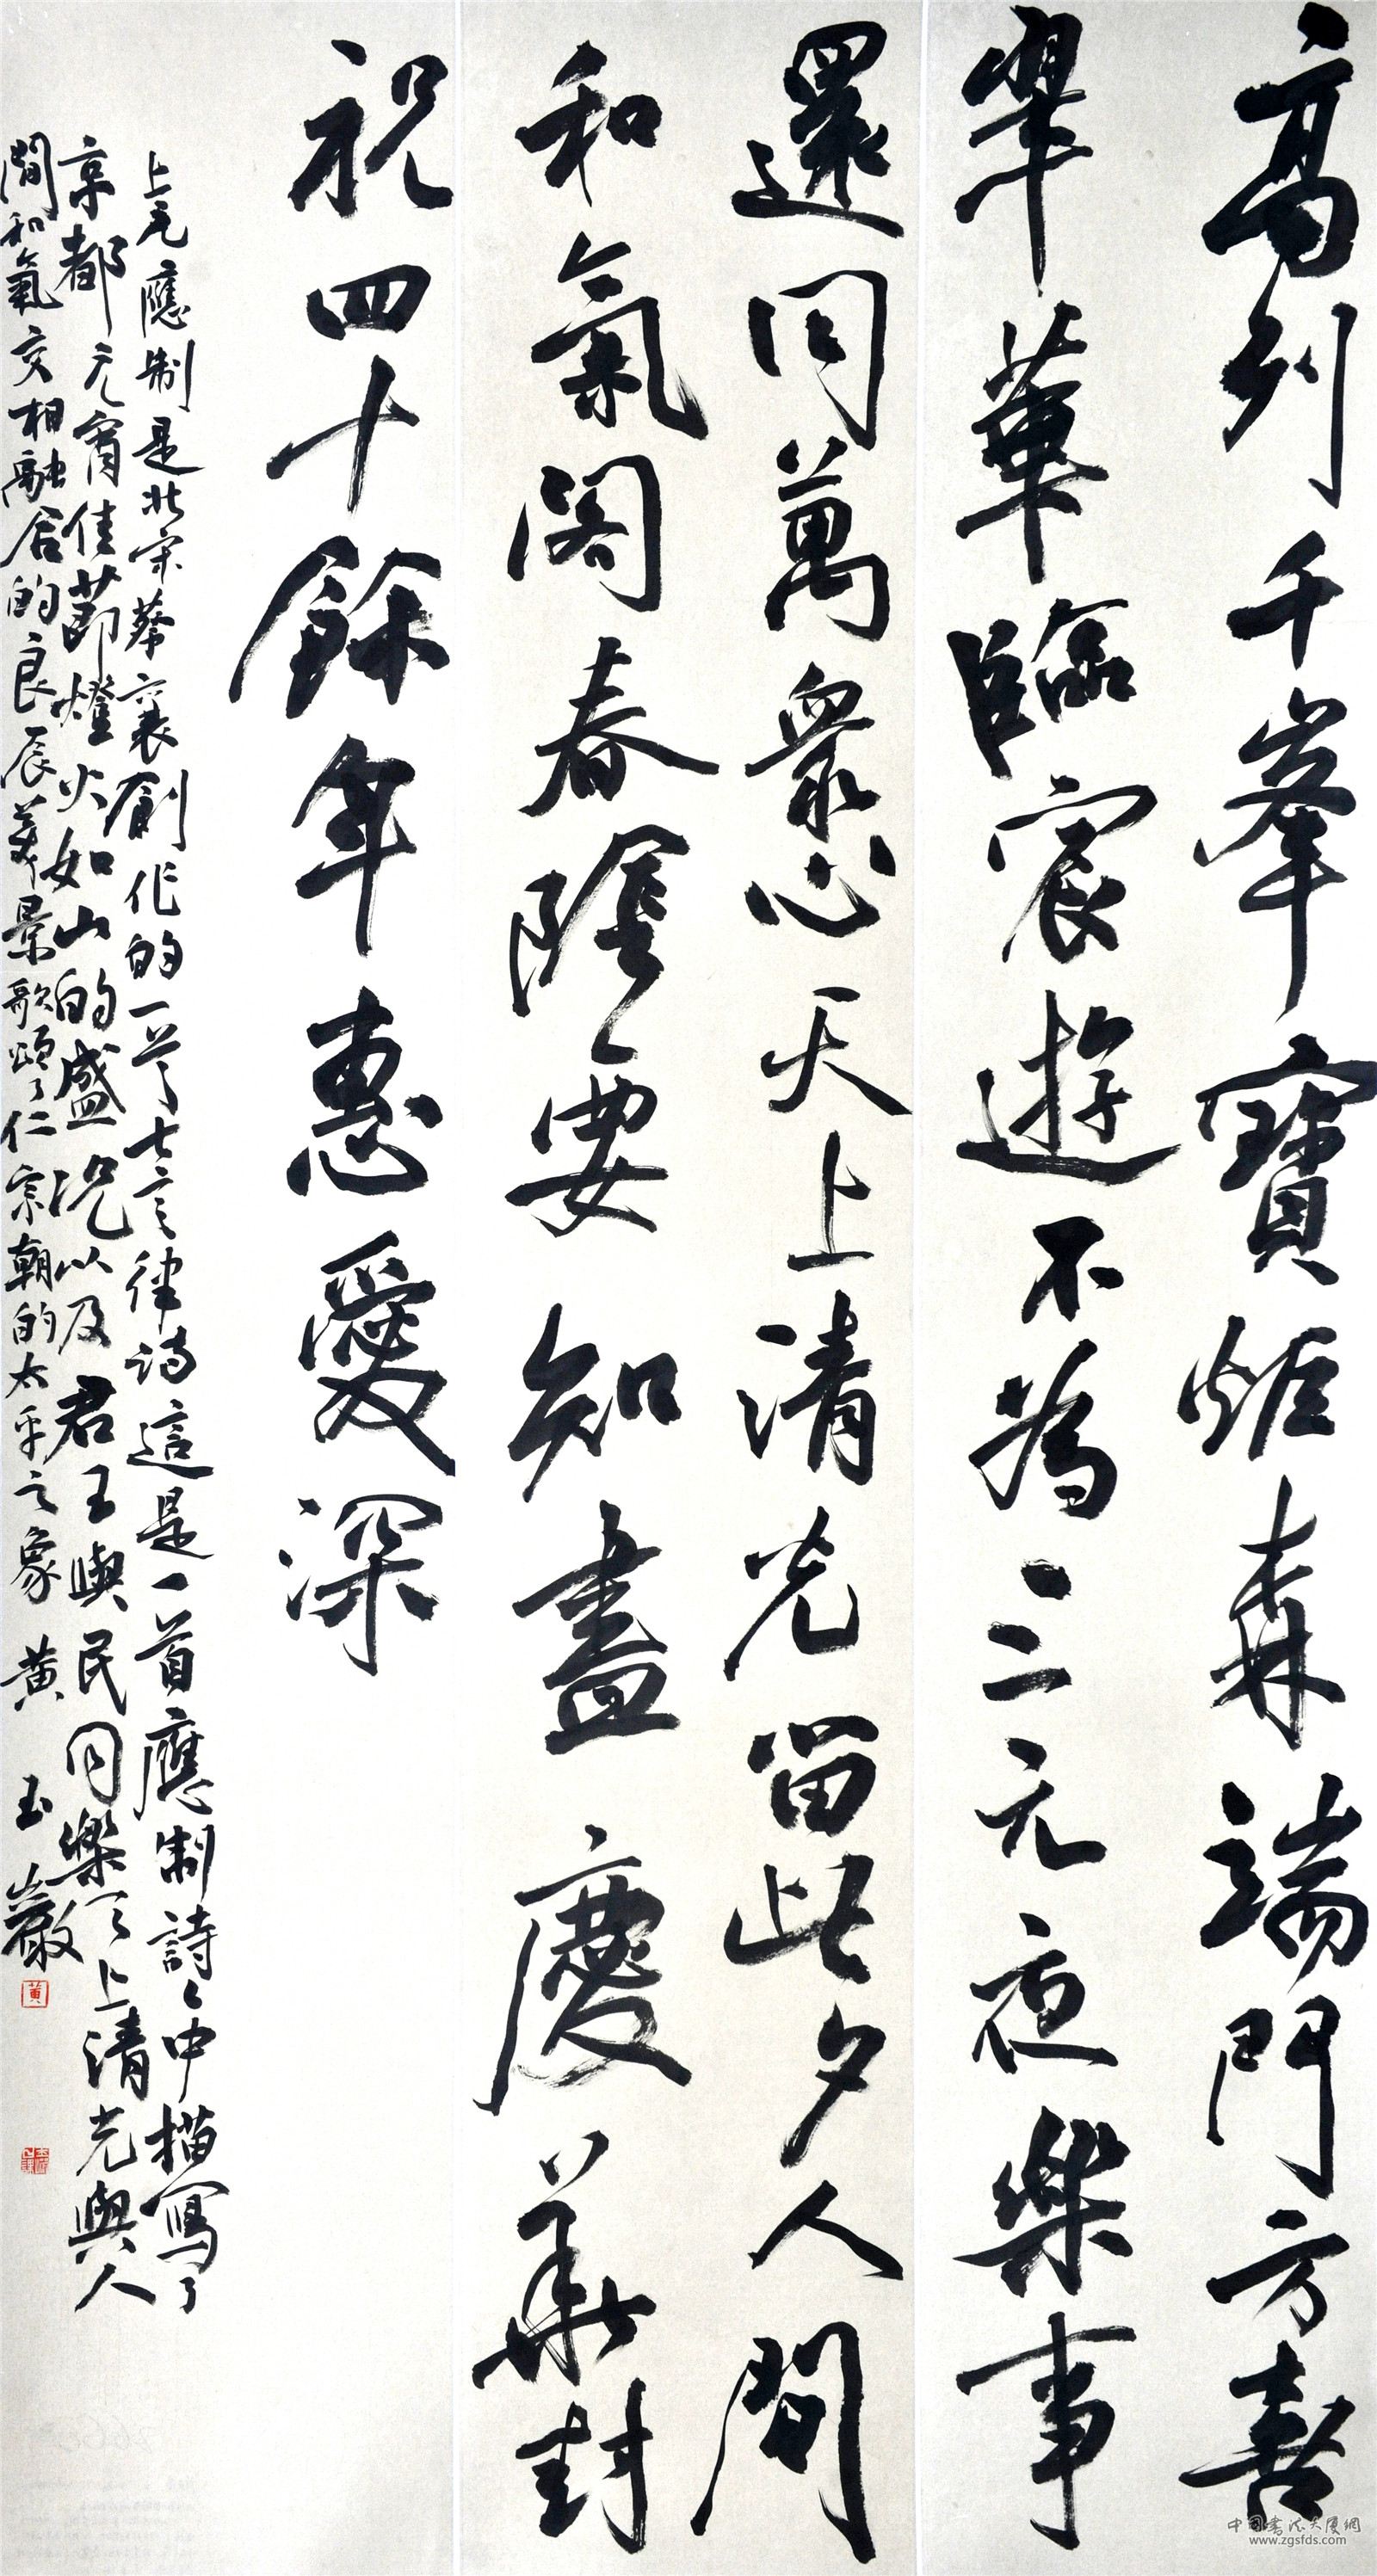 高列千峯寶炬森端門方喜
翠華臨宸遊不為三元夜樂事
還同萬衆心天上清光留此夕人間
和氣閣春陰要知盡慶華封
祝四十餘年惠愛深
上元應制是北宋蔡襄創作的一首七言律詩這是一首應制詩詩中描寫了
京都元宵佳節燈火如山的盛況以及君王與民同樂天上清光與人
間和氣交相融合的良辰美景歌頌了仁宗朝的太平之象 黄玉嚴
黄
中国书法大厦網
www.zgsfds.com